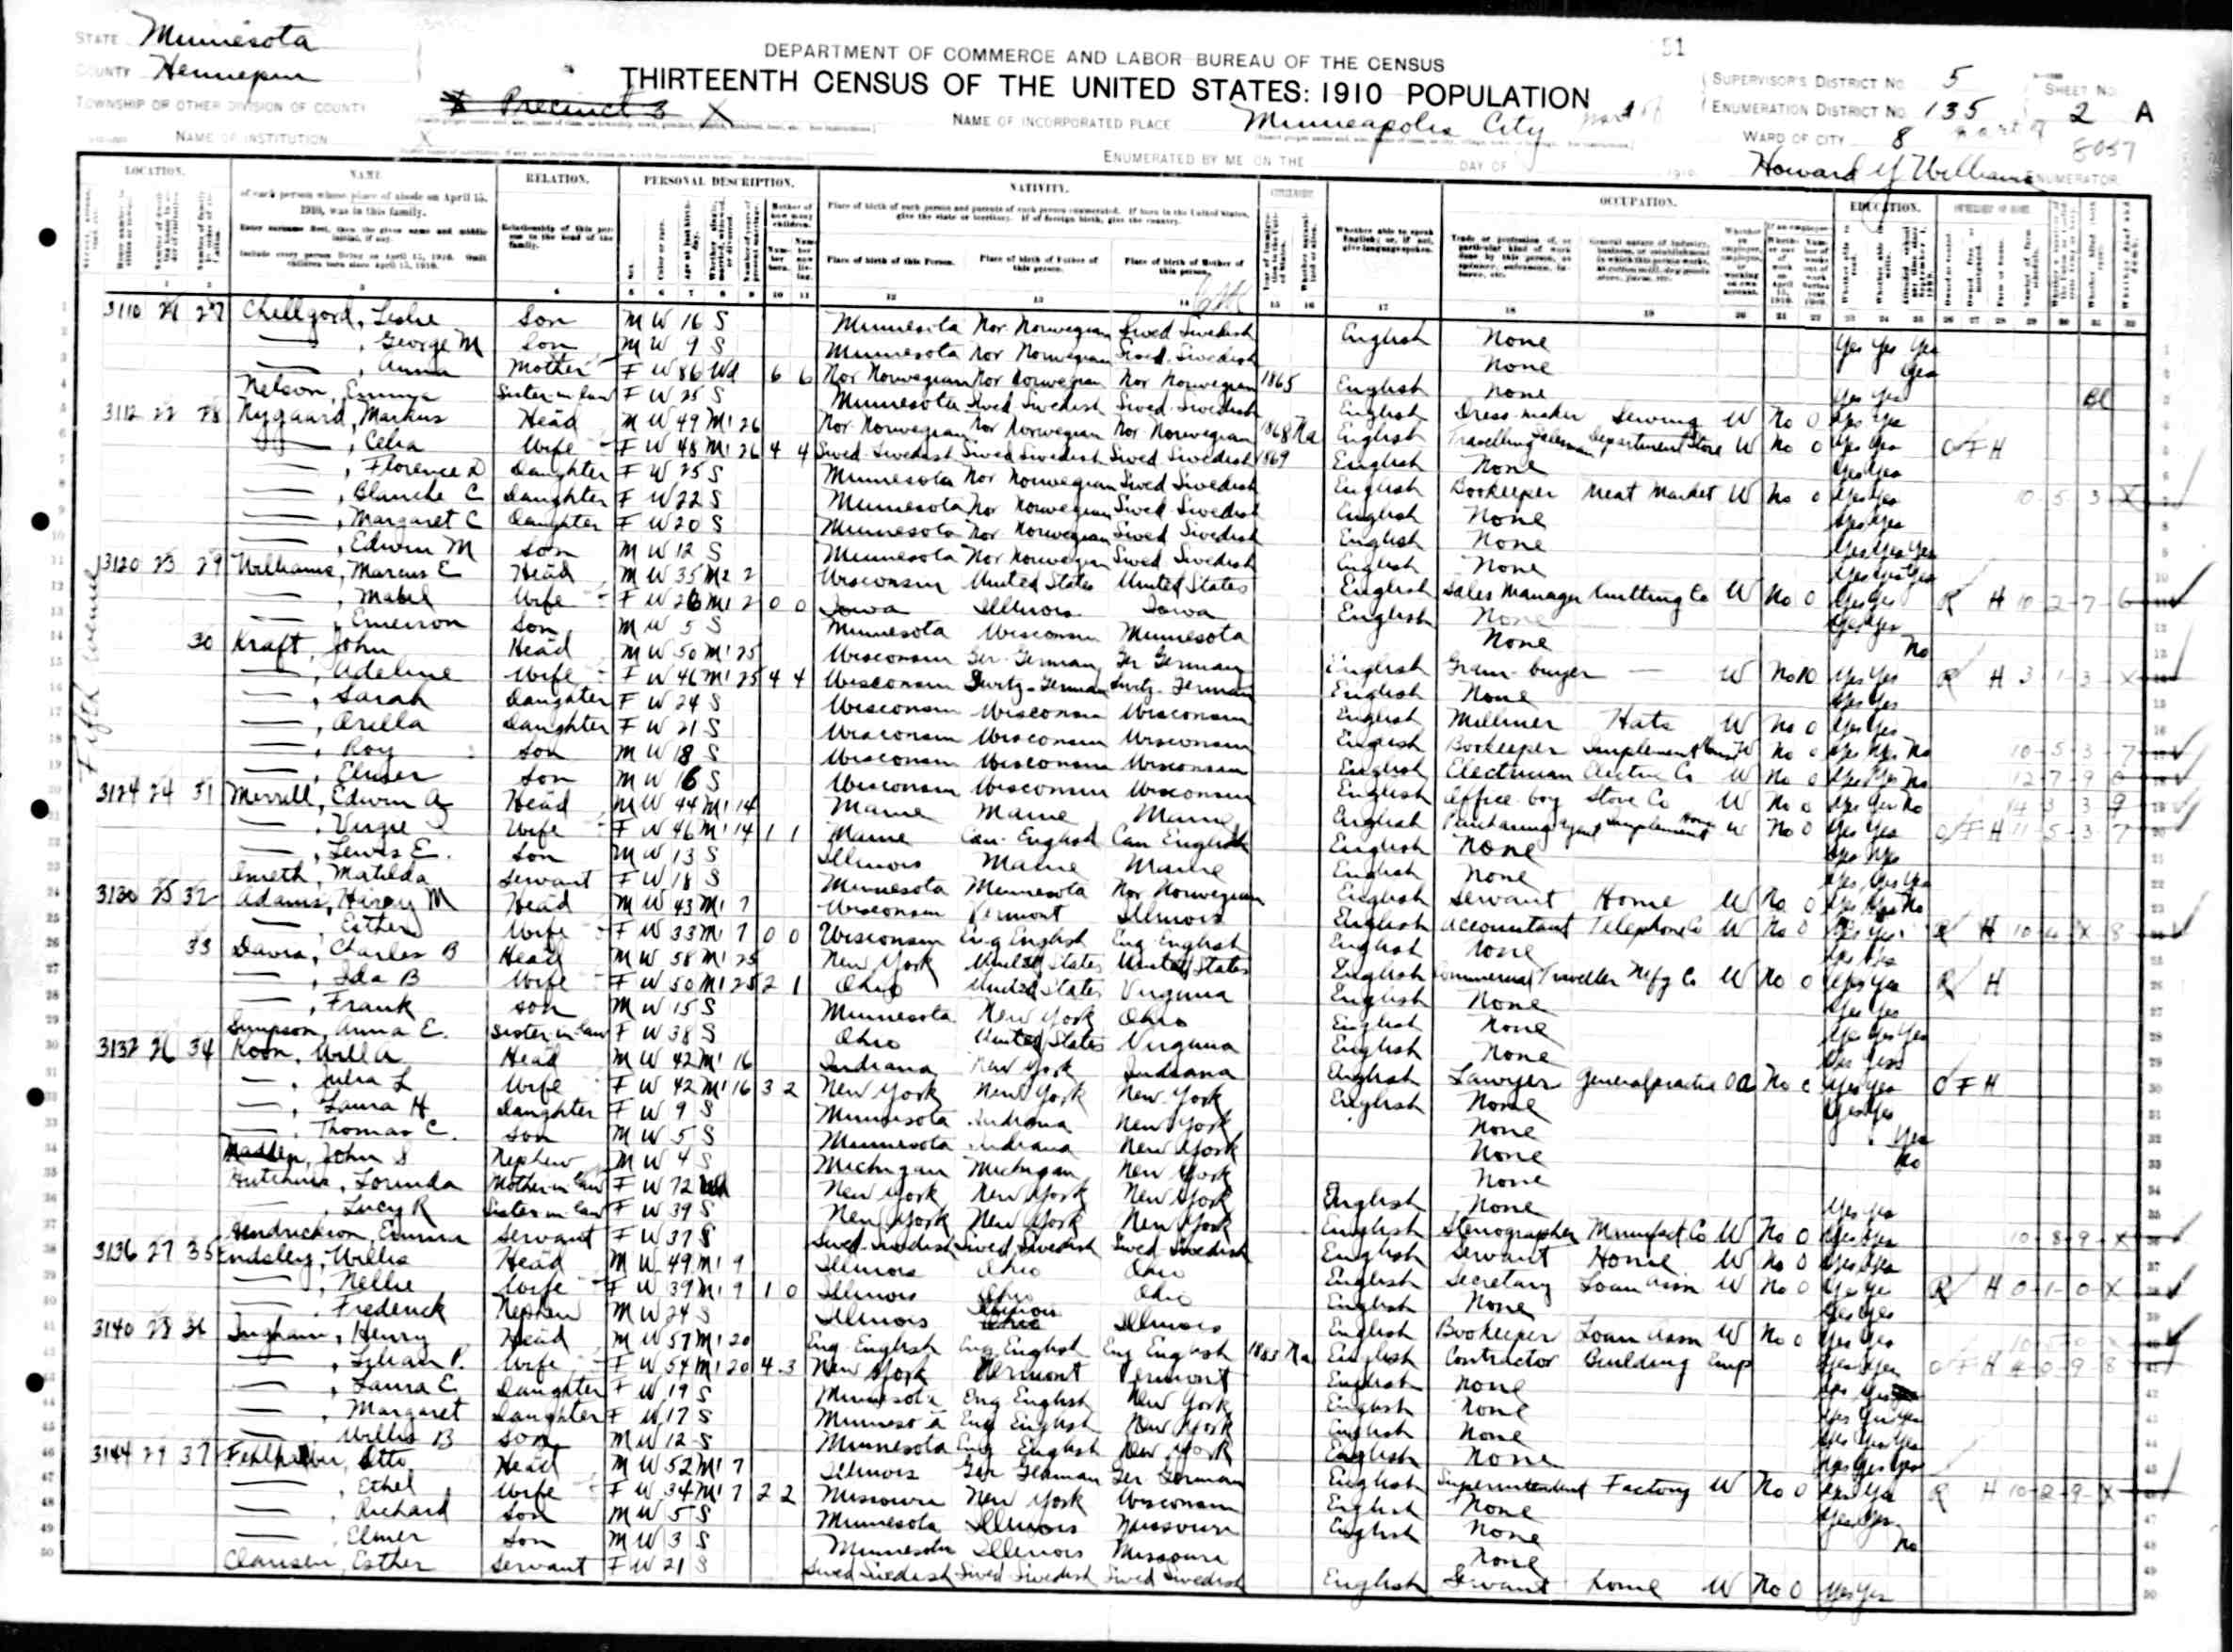 STATE Minnesota
COUNTY Hennepin
TOWNSHIP OR OTHER DIVISION OF COUNTY X Precinct 3 X
NAME OF INSTITUTION X
DEPARTMENT OF COMMERCE AND LABOR-BUREAU OF THE CENSUS
THIRTEENTH CENSUS OF THE UNITED STATES: 1910 POPULATION
NAME OF INCORPORATED PLACE Minneapolis City part of
ENUMERATED BY ME ON THE DAY OF 1910
51
SUPERVISOR'S DISTRICT NO. 5
ENUMERATION DISTRICT NO. 135
WARD OF CITY 8 part of
SHEET NO. 2 A
8057
Howard Y Williams ENUMERATOR
LOCATION. NAME RELATION. PERSONAL DESCRIPTION. NATIVITY. CITIZENSHIP. OCCUPATION. EDUCATION. OWNERSHIP OF HOME.
of each person whose place of abode on April 15, 1910, was in this family.
Enter surname first, then the given name and middle initial, if any.
Include every person living on April 15, 1910. Omit children born since April 15, 1910.
Relationship of this person to the head of the family.
Place of birth of each person and parents of each person enumerated. If born in the United States, give the state or territory. If of foreign birth, give the country.
Place of birth of this Person. Place of birth of Father of this person. Place of birth of Mother of this person.
Whether able to speak English; or, if not, give language spoken.
Fifth Avenue
3110 21 27 Chellgord, Leslie Son M W 16 S Minnesota Nor Norwegian Swed Swedish English None Yes Yes Yes
—, George M Son M W 9 S Minnesota Nor Norwegian Swed Swedish None Yes
—, Anna Mother F W 86 Wd 6 6 Nor Norwegian Nor Norwegian Nor Norwegian 1865 English None Yes Yes Bl
Nelson, Emma Sister in law F W 25 S Minnesota Swed Swedish Swed Swedish English Dress-maker Sewing W No 0 Yes Yes
3112 22 28 Nygaard, Markus Head M W 49 M1 26 Nor Norwegian Nor Norwegian Nor Norwegian 1868 Na English Travelling Salesman Department Store W No 0 Yes Yes O F H
—, Celia Wife F W 48 M1 26 4 4 Swed Swedish Swed Swedish Swed Swedish 1869 English None Yes Yes
—, Florence D Daughter F W 25 S Minnesota Nor Norwegian Swed Swedish English Bookeeper Meat Market W No 0 Yes Yes 10-5-3-X
—, Blanche C Daughter F W 22 S Minnesota Nor Norwegian Swed Swedish English None Yes Yes
—, Margaret C Daughter F W 20 S Minnesota Nor Norwegian Swed Swedish English None Yes Yes Yes
—, Edwin M Son M W 12 S Minnesota Nor Norwegian Swed Swedish English None Yes Yes Yes
3120 23 29 Williams, Marcus E Head M W 35 M2 2 Wisconsin United States United States English Sales Manager Knitting Co W No 0 Yes Yes R H 10-2-7-6
—, Mabel Wife F W 26 M1 2 0 0 Iowa Illinois Iowa English None Yes Yes
—, Emerson Son M W 5 S Minnesota Wisconsin Minnesota None No
30 Kraft, John Head M W 50 M1 25 Wisconsin Ger German Ger German English Grain-buyer — W No 10 Yes Yes R H 3-1-3-X
—, Adeline Wife F W 46 M1 25 4 4 Wisconsin Switz-German Switz-German English None Yes Yes
—, Sarah Daughter F W 24 S Wisconsin Wisconsin Wisconsin English Milliner Hats W No 0 Yes Yes
—, Orilla Daughter F W 21 S Wisconsin Wisconsin Wisconsin English Bookeeper Implement House W No 0 Yes Yes No 10-5-3-7
—, Roy Son M W 18 S Wisconsin Wisconsin Wisconsin English Electrician Electric Co W No 0 Yes Yes No
—, Elmer Son M W 16 S Wisconsin Wisconsin Wisconsin English Office boy Stove Co W No 0 Yes Yes No
3124 24 31 Merrill, Edwin A Head M W 44 M1 14 Maine Maine Maine English Purchasing agent Implement House W No 0 Yes Yes O F H 11-5-3-7
—, Virgie Wife F W 46 M1 14 1 1 Maine Can English Can English English None Yes Yes
—, Lewis E. Son M W 13 S Illinois Maine Maine English None Yes Yes Yes
Smeth, Matilda Servant F W 18 S Minnesota Minnesota Nor Norwegian English Servant Home W No 0 Yes Yes No
3130 25 32 Adams, Hiram M Head M W 43 M1 7 Wisconsin Vermont Illinois English Accountant Telephone Co W No 0 Yes Yes R H 10-4-X-8
—, Esther Wife F W 33 M1 7 0 0 Wisconsin Eng English Eng English English None Yes Yes
33 Davis, Charles B Head M W 58 M1 25 New York United States United States English Commercial Traveller Mfg Co W No 0 Yes Yes R H
—, Ida B Wife F W 50 M1 25 2 1 Ohio United States Virginia English None Yes Yes
—, Frank Son M W 15 S Minnesota New York Ohio English None Yes Yes Yes
Simpson, Anna E. Sister in law F W 38 S Ohio United States Virginia English None Yes Yes
3132 26 34 Koon, Will A Head M W 42 M1 16 Indiana New York Indiana English Lawyer General practice OA No 0 Yes Yes O F H
—, Julia L Wife F W 42 M1 16 3 2 New York New York New York English None Yes Yes
—, Laura H Daughter F W 9 S Minnesota Indiana New York None Yes
—, Thomas C. Son M W 5 S Minnesota Indiana New York None No
Madden, John S Nephew M W 4 S Michigan Michigan New York None
Hutchins, Lorinda Mother in law F W 72 Wd New York New York New York English None Yes Yes
—, Lucy R Sister in law F W 39 S New York New York New York English Stenographer Manufact Co W No 0 Yes Yes 10-8-9-X
Hendrickson, Emma Servant F W 37 S Swed Swedish Swed Swedish Swed Swedish English Servant Home W No 0 Yes Yes
3136 27 35 Endsley, Willis Head M W 49 M1 9 Illinois Ohio Ohio English Secretary Loan Assn W No 0 Yes Yes R H 0-1-0-X
—, Nellie Wife F W 39 M1 9 1 0 Illinois Ohio Ohio English None Yes Yes
—, Frederick Nephew M W 24 S Illinois Illinois Illinois English Bookeeper Loan Assn W No 0 Yes Yes
3140 28 36 Ingham, Henry Head M W 57 M1 20 Eng English Eng English Eng English 1883 Na English Contractor Building Emp Yes Yes O F H 4-0-9-8
—, Lilian P. Wife F W 54 M1 20 4 3 New York Vermont Vermont English None Yes Yes
—, Laura E. Daughter F W 19 S Minnesota Eng English New York English None Yes Yes Yes
—, Margaret Daughter F W 17 S Minnesota Eng English New York English None Yes Yes Yes
—, Willis B Son M W 12 S Minnesota Eng English New York English None Yes Yes Yes
3144 29 37 Otto Head M W 52 M1 7 Illinois Ger German Ger German English Superintendent Factory W No 0 Yes Yes R H 10-2-9-X
—, Ethel Wife F W 34 M1 7 2 2 Missouri New York Wisconsin English None Yes Yes
—, Richard Son M W 5 S Minnesota Illinois Missouri English None No
—, Elmer Son M W 3 S Minnesota Illinois Missouri None
Clausen, Esther Servant F W 21 S Swed Swedish Swed Swedish Swed Swedish English Servant Home W No 0 Yes Yes